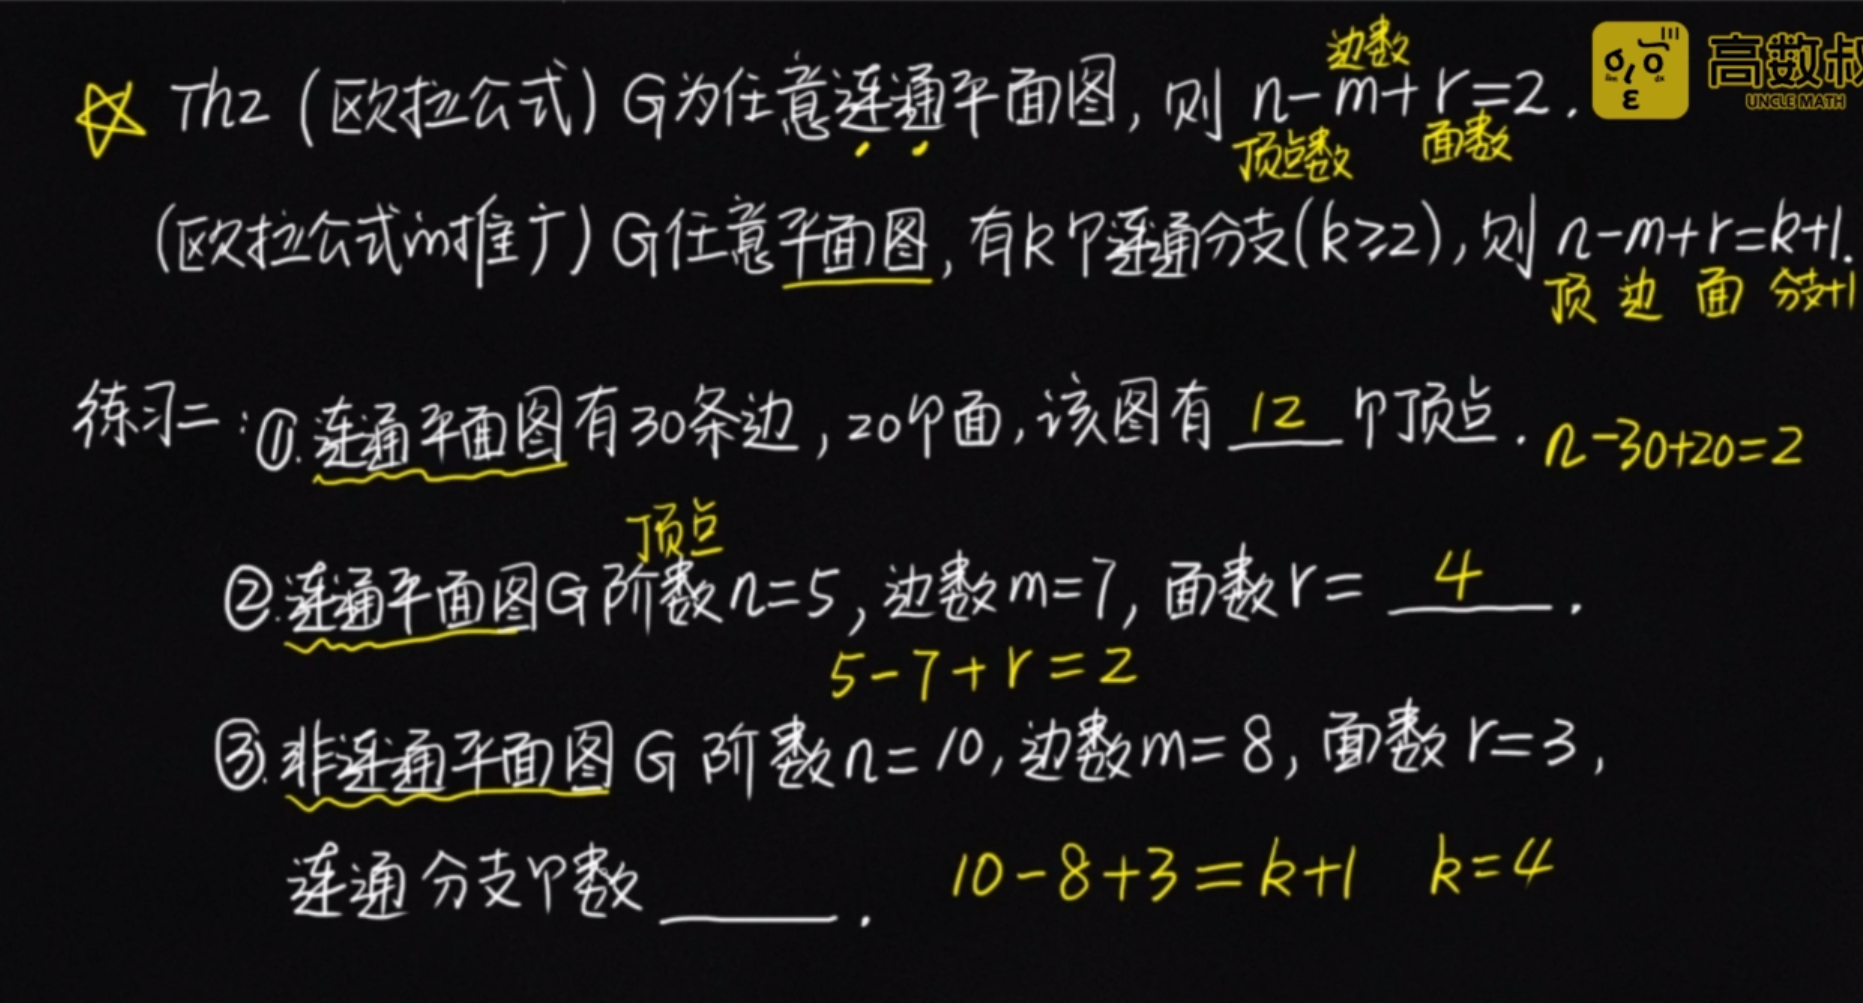 边数
高数叔
UNCLE MATH
☆ Th2 (欧拉公式) G为任意连通平面图, 则 n-m+r=2.
顶点数 面数
(欧拉公式的推广) G任意平面图, 有k个连通分支(k≥2), 则 n-m+r=k+1.
顶 边 面 分支+1
练习二: ①. 连通平面图有30条边, 20个面, 该图有 12 个顶点. n-30+20=2
顶点
②. 连通平面图G阶数n=5, 边数m=7, 面数r= 4 .
5-7+r=2
③. 非连通平面图 G 阶数n=10, 边数m=8, 面数r=3,
连通分支个数 ____ . 10-8+3=k+1 k=4